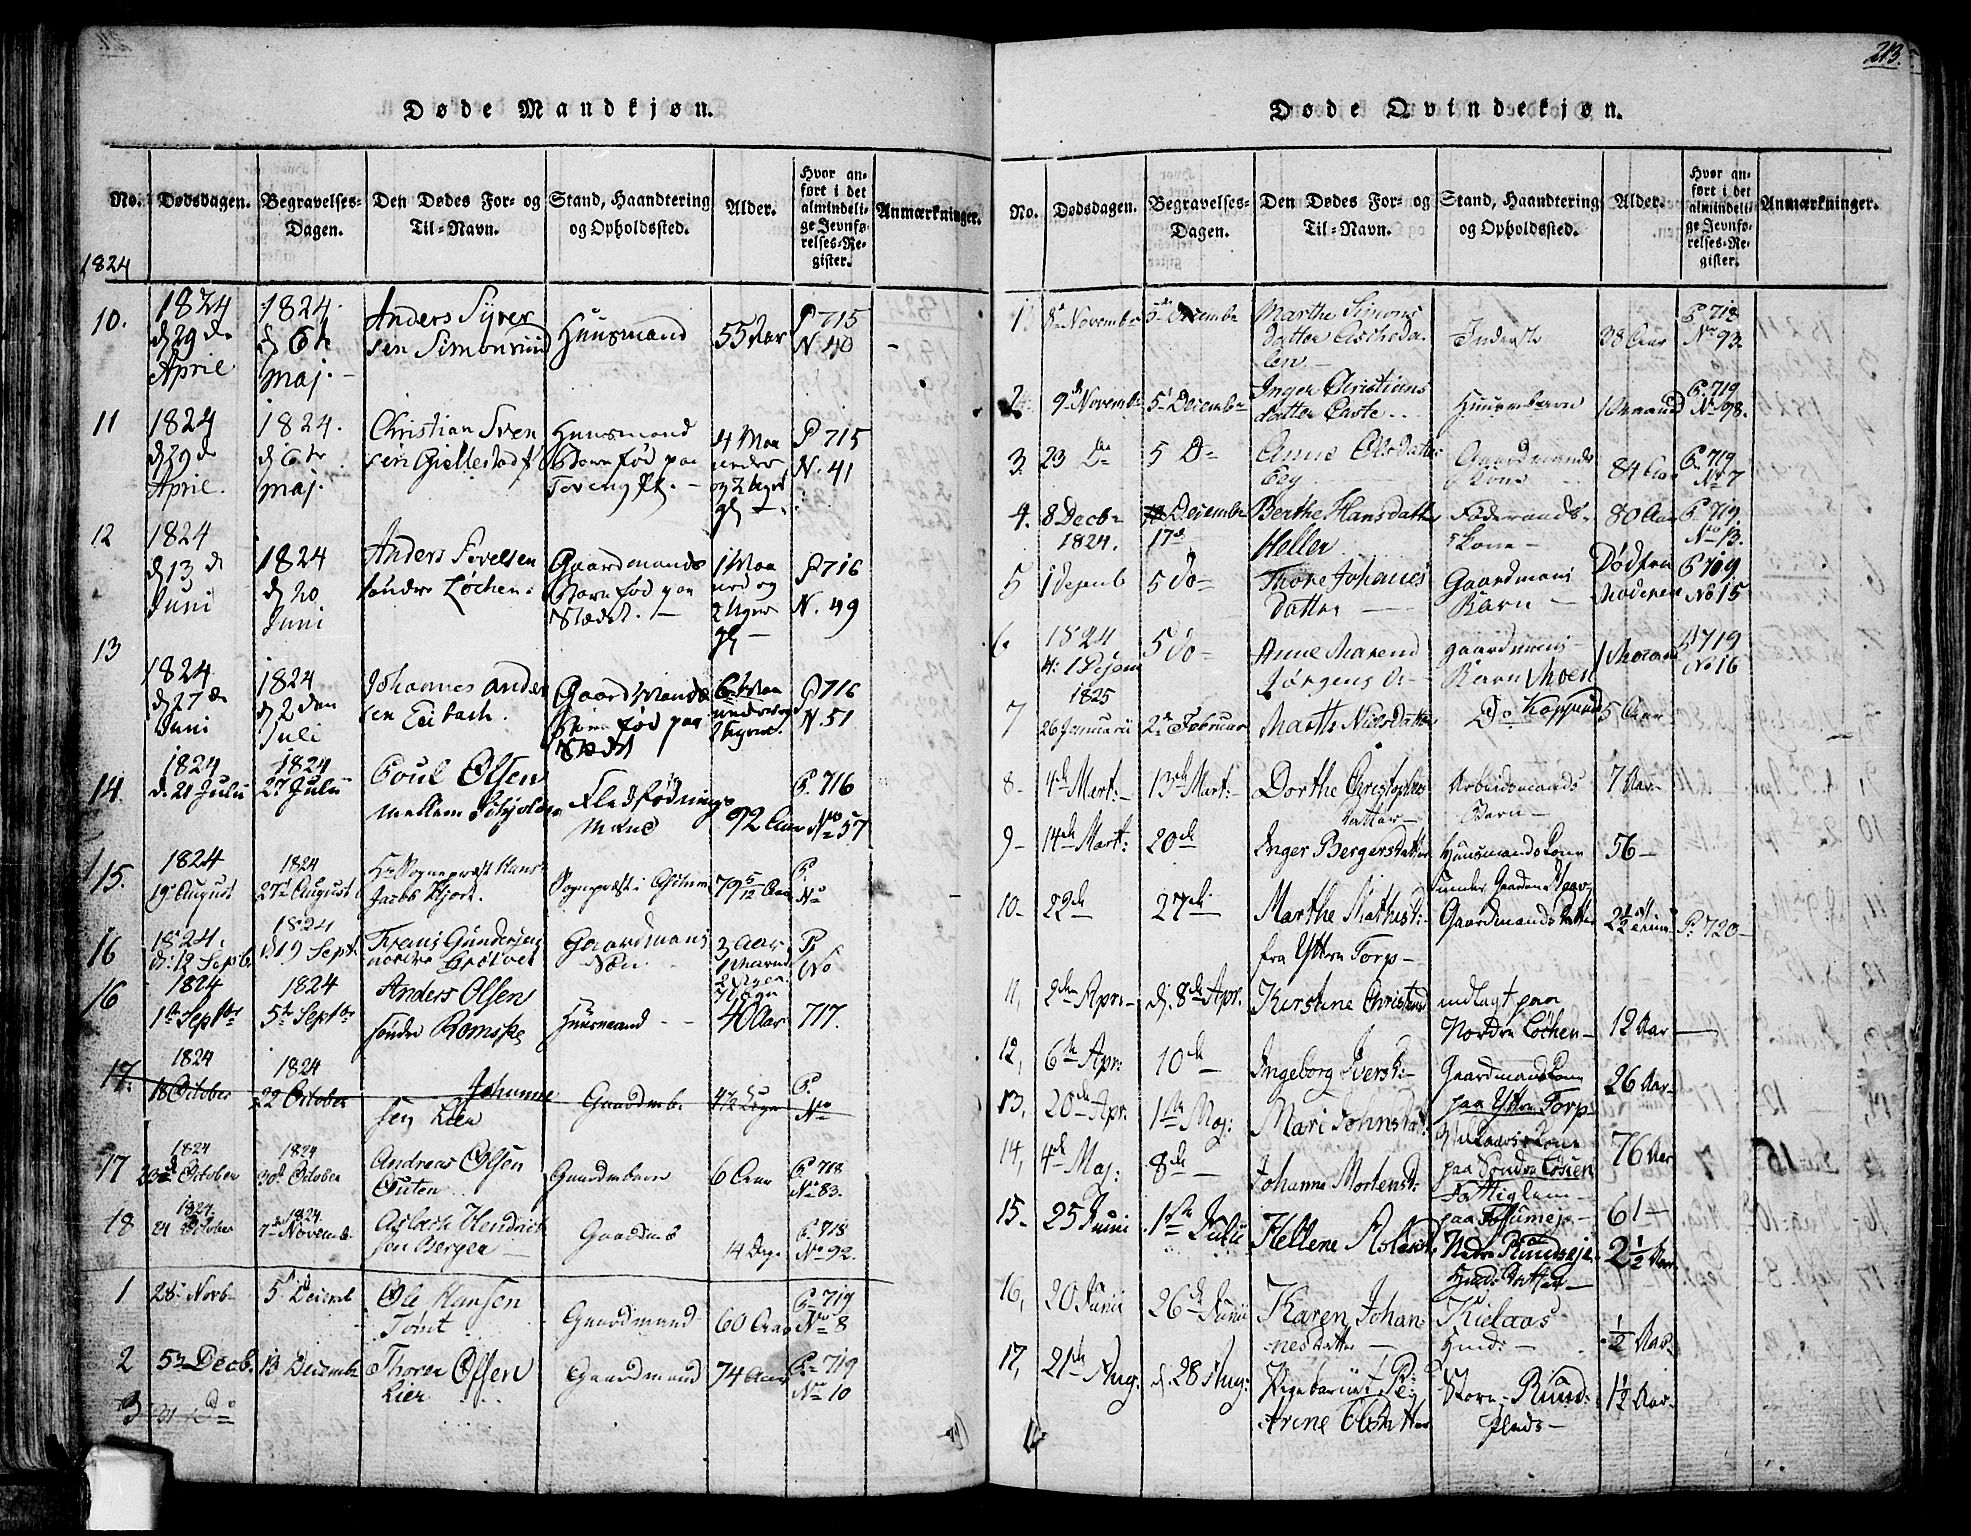 213.
Døde Mandkjøn.
No.
Dødsdagen.
Begravelses-
Dagen.
Den Dødes For- og
Til-Navn.
Stand, Haandtering
og Opholdssted.
Alder.
Hvor an-
ført i det
almindeli-
ge Jevnfø-
relses-Re-
gister.
Anmærkninger.
1824
10.
1824
d 29 de
April
1824.
d 6te
Maj.
Anders Syver
sen Simonsrud
Huusmand
55 Aar
P 715
N. 40
11
1824
d 29 de
April.
1824.
d 6te
Maj.
Christian Sven
sen Giellestad
Huusmand
Barn fød paa
4 Maa
neder
og 2 Uger
gl
P 715
N. 41
12
1824
d 13 d
Juni
1824
d 20
Juni
Anders Sevelsen
søndre Løchen.
Gaardmands
Barn fød paa
Stædet.
1 Maa
ned og
2 Uger
gl
P 716
N. 49
13
1824
d 27 de
Juni
1824
d 2 den
Juli
Johannes Ander
sen Eeibach.
Gaardmands
Barn fød paa
Stædet
6 Maa
neder og
P 716
N. 51
14
1824
d. 21 Julii
1824
27 Julii
Poul Olsen
mellem
Fledfødnings
Mand
92 Aar
P. 716
No 57
15.
1824
19 August
1824
27 August
Hr Sognepræst Hans
Jacob Hjort.
Sognepræst i
79 5/12 Aar
P.
No
16
1824.
d: 12 Septb
1824
d 19 Sept.
Frans Gundersen
nordre
Gaardmans
Søn
3 Aar
1 Maaned
2 Uger
P.
No
16
1824
1te Septbr
1824
5te Septbr
Anders Olsen
søndre Romske
Huusmand
40 Aar
717.
17.
1824
18 October
1824
22 October
Johanne
sen Lier
Gaardmb
4½ Uger
P.
No
17
1824
23de October
1824
30d October
Andreas Olsen
Outen
Gaardmbarn
6 Aar
P. 718
No 83.
18
1824.
24 October
1824.
7de Novemb
Aslach Hendrich
sen Bergen
Gaardmb
14 Dage
P. 718
No 92.
1
28 Novb
5 Decemb
Ole Hansen
Tomt
Gaardmand
60 Aar
P 719
No 8
2
5te Decb.
13 Decembr
Thoren Olsen
Lier
Gaardmand
74 Aar
P 719
No 10
3
31 Do
Døde Qvindekjøn.
No.
Dødsdagen.
Begravelses-
Dagen.
Den Dødes For- og
Til-Navn.
Stand, Haandtering
og Opholdssted.
Alder.
Hvor an-
ført i det
almindeli-
ge Jevnfø-
relses-Re-
gister.
Anmærkninger.
1
8de Novembr
5de Decembr
Marthe Simons
datter Askeda-
len
Inderste
38 Aar
P. 718
No 93.
2
9d Novemb
5 Decembr
Inger Christians
datter
Huusmbarn
P. 719
No 98.
3.
23 Do
5 Do
Anne Olsdatter
Gaardmands
Kone
84 Aar
P. 719
No 7
4.
8 Decb
1824.
Decembr
17d
Berthe Hansdatter
Heller
Føderaads-
kone
80 Aar
P. 719
No 13.
5
1 Dejemb
5 Do
Thore Johanes
datter
Gaardmans
Barn
Dødfra
Moderen
P 719
No 15
6.
1824
d: 1 Dejem
5 Do
Anne Marend
Jørgens D
gaardmans
Barn Moen
1 Maaned
P 719
No 16
7
1825
26 Januarii
2de Februar
Marthe Nielsdatter
Do Kopperud
5 Aar
8-
4de Mart:
13de Mart:
Dorthe Christophers
datter
Arbeidsmands
Barn
7 Aar
9-
14de Mart:
20de
Inger Bergersdatter
Huusmandskone
under Gaarden
56
10-
22de
27de
Marthe Mathisd:
fra Yttre Torp
Gaardmands Datter
2½
P. 720
11,
2den Apr.
d. 8de Apr.
Kirstine Christians
indlagt paa
Nordre Løchen
12 Aar
12,
6te Apr:
10de
Ingeborg Iversd:
Gaardmandskone
paa Yttre Torp
26 Aar
13,
20de Apr.
1te Maj:
Mari Johnsdatt:
Kone
paa Søndre Løchen
76 Aar
14,
4de Maj:
8de
Johanne Mortensd:
Fattiglem
61
15-
25 Junii
1ste Julii
Hellene Aslachd:
Nedre Rundseje
Hmds Datter
2½ Aar
16,
20 Junii
26de Junii
Karen Johan-
nesdatter
Kielaas
Hmds
½ Aar
17,
21de Aug:
d. 28 Aug:
Arine
Store Rund-
plads
1½ Aar